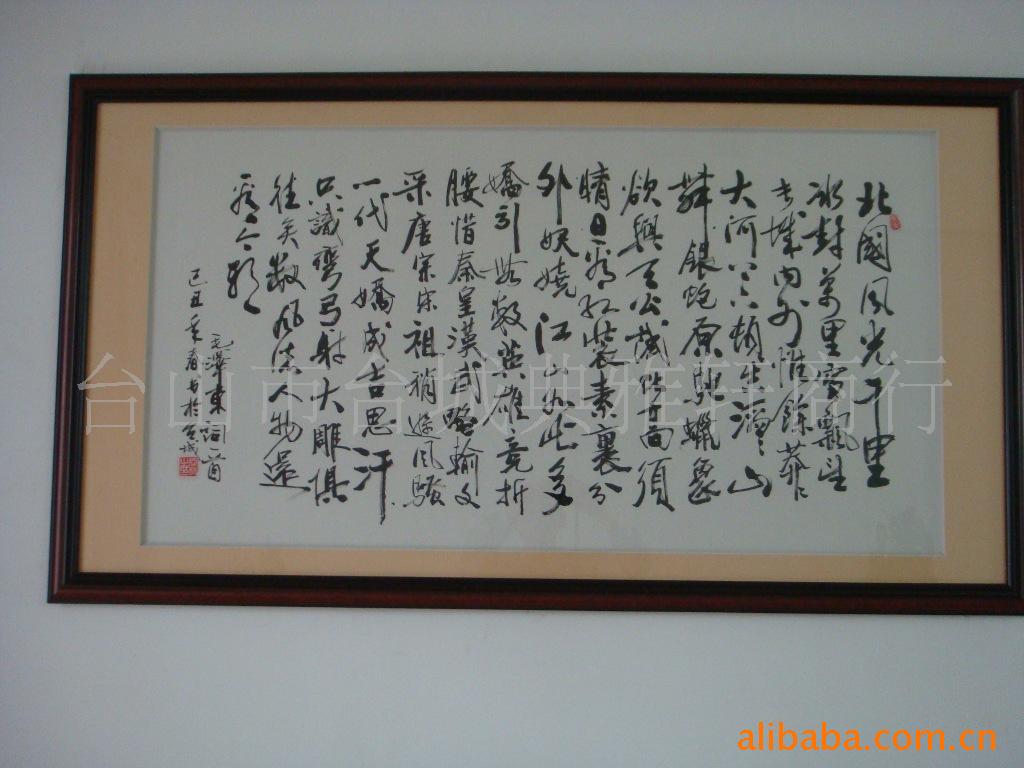 北國风光千里
冰封萬里雪飄望
长城内外惟餘莽〻
大河上下頓失滔〻山
舞銀蛇原馳蠟象
欲與天公試比高須
晴日看红裝素裹分
外妖嬈江山如此多
嬌引無數英雄竞折
腰惜秦皇漢武略輸文
采唐宗宋祖稍遜风騷
一代天嬌成吉思汗
只識彎弓射大雕俱
往矣數风流人物還
看今朝
毛澤東詞一首
己丑年春书於台城
台山市台城典雅轩商行
alibaba.com.cn